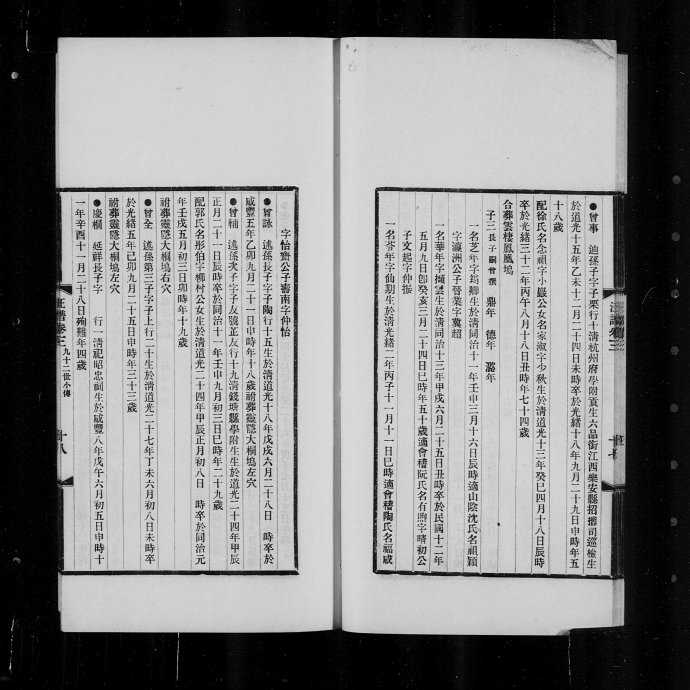 ●曾事　迪孫子字子栗行十清杭州府學附貢生六品銜江西樂安縣招攜司巡檢生
於道光十五年乙未十二月二十四日未時卒於光緒十八年九月二十九日申時年五
十八歲
配徐氏名念祖字小巖公女名家淑字少秋生於清道光十三年癸巳四月十八日辰時
卒於光緒三十二年丙午八月十八日丑時年七十四歲
合葬雲棲鳳凰塢
子三長子嗣曾撰　鼎年　德年　潞年
一名芝年字筠卿生於清同治十一年壬申三月十六日辰時適山陰沈氏名祖穎
字瀛洲公子登業字冀超
一名華年字擷雲生於清同治十三年甲戌六月二十五日丑時卒於民國十二年
五月九日卽癸亥三月二十四日巳時年五十歲適會稽阮氏名有煦字晴初公
子文起字仲振
一名荅年字仙期生於清光緒二年丙子十一月十一日巳時適會稽陶氏名福咸
字怡齋公子壽南字仲怡
●曾詠　述孫長子字子陶行十五生於清道光十八年戊戌六月二十八日　時卒於
咸豐五年乙卯九月二十一日　時年十八歲祔葬靈隱大桐塢左穴
●曾輔　述孫次子字子友號芷友行十九清錢塘縣學附生生於道光二十四年甲辰
正月二十一日辰時卒於同治十一年壬申九月初三日巳時年二十九歲
配郭氏名彤伯字柳村公女生於清道光二十四年甲辰正月初八日　時卒於同治元
年壬戌五月初三日卯時年十九歲
祔葬靈隱大桐塢右穴
●曾全　述孫第三子字子上行二十生於清道光二十七年丁未六月初八日未時卒
於光緒五年己卯九月二十五日申時年三十三歲
祔葬靈隱大桐塢左穴
●慶楣　延祥長子字　行一清祀昭忠祠生於咸豐八年戊午六月初五日申時十
一年辛酉十一月二十八日殉難年四歲
九十二世小傳